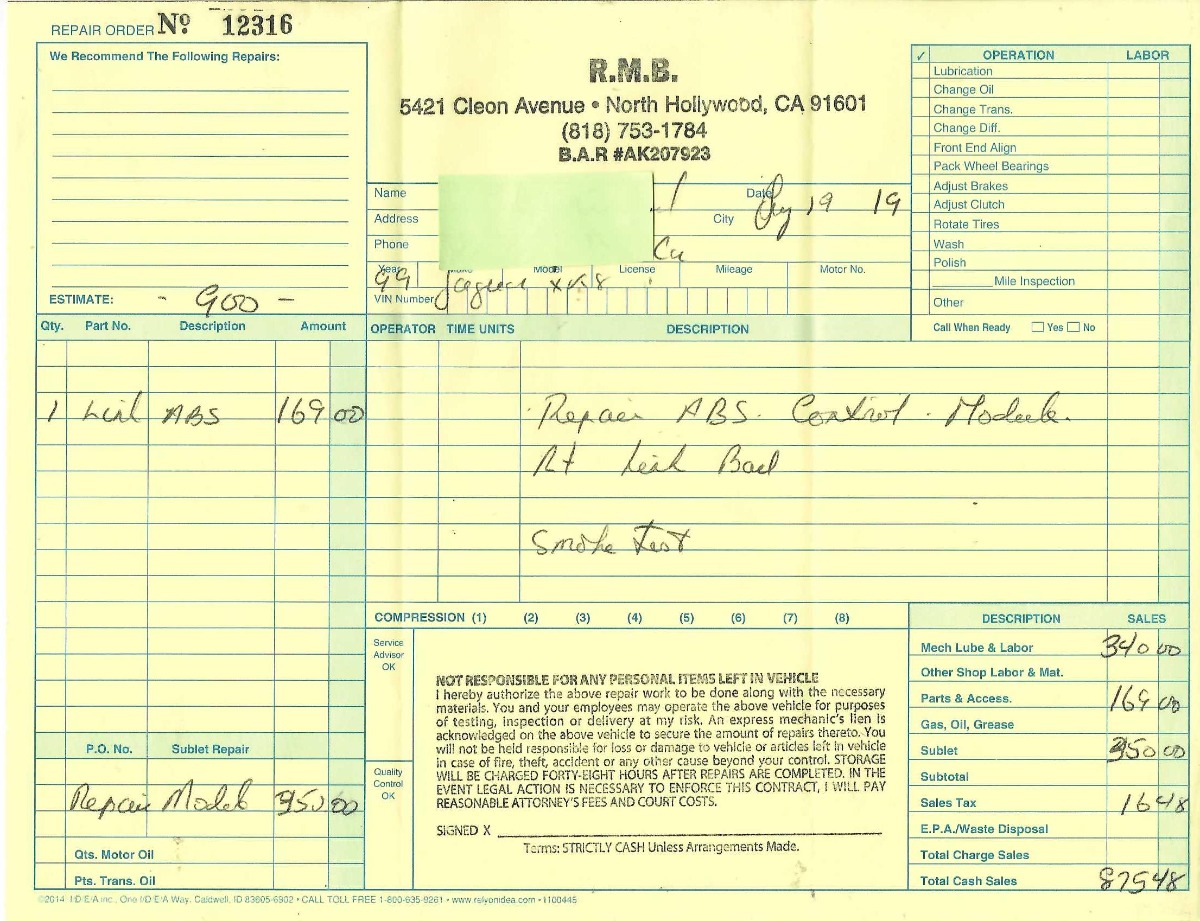 REPAIR ORDER Nº 12316
We Recommend The Following Repairs:
ESTIMATE: - 900 -
R.M.B.
5421 Cleon Avenue • North Hollywood, CA 91601
(818) 753-1784
B.A.R #AK207923
Name
Date 19 19
Address
City
Phone
Ca
Year Make Model License Mileage Motor No.
99 Jaguar XK8
VIN Number
✓ OPERATION LABOR
Lubrication
Change Oil
Change Trans.
Change Diff.
Front End Align
Pack Wheel Bearings
Adjust Brakes
Adjust Clutch
Rotate Tires
Wash
Polish
Mile Inspection
Other
Call When Ready Yes No
Qty. Part No. Description Amount
1 ABS 169 00
OPERATOR TIME UNITS DESCRIPTION
Repair ABS. Control Module.
Rt Bad
Smoke Test
P.O. No. Sublet Repair
Repair 350 00
Qts. Motor Oil
Pts. Trans. Oil
COMPRESSION (1) (2) (3) (4) (5) (6) (7) (8)
Service
Advisor
OK
Quality
Control
OK
NOT RESPONSIBLE FOR ANY PERSONAL ITEMS LEFT IN VEHICLE
I hereby authorize the above repair work to be done along with the necessary
materials. You and your employees may operate the above vehicle for purposes
of testing, inspection or delivery at my risk. An express mechanic's lien is
acknowledged on the above vehicle to secure the amount of repairs thereto. You
will not be held responsible for loss or damage to vehicle or articles left in vehicle
in case of fire, theft, accident or any other cause beyond your control. STORAGE
WILL BE CHARGED FORTY-EIGHT HOURS AFTER REPAIRS ARE COMPLETED. IN THE
EVENT LEGAL ACTION IS NECESSARY TO ENFORCE THIS CONTRACT, I WILL PAY
REASONABLE ATTORNEY'S FEES AND COURT COSTS.
SIGNED X
Terms: STRICTLY CASH Unless Arrangements Made.
DESCRIPTION SALES
Mech Lube & Labor 340 00
Other Shop Labor & Mat.
Parts & Access. 169 00
Gas, Oil, Grease
Sublet 350 00
Subtotal
Sales Tax 16 48
E.P.A./Waste Disposal
Total Charge Sales
Total Cash Sales 875 48
©2014 I/D/E/A inc., One I/D/E/A Way, Caldwell, ID 83605-6902 • CALL TOLL FREE 1-800-635-9261 • www.relyonidea.com • 1100445